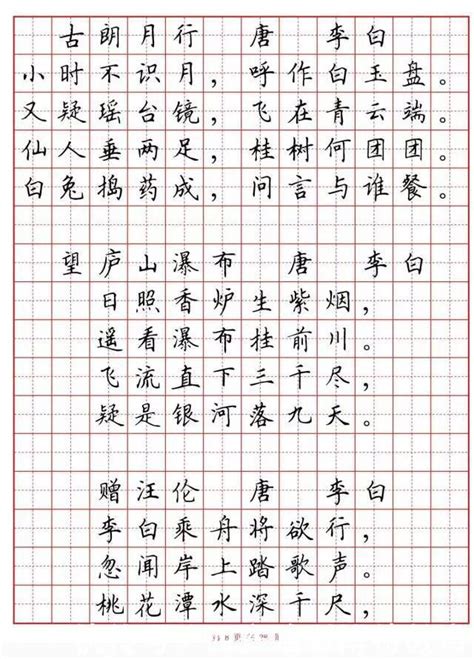 古朗月行 唐 李白
小时不识月，呼作白玉盘。
又疑瑶台镜，飞在青云端。
仙人垂两足，桂树何团团。
白兔捣药成，问言与谁餐。
望庐山瀑布 唐 李白
日照香炉生紫烟，
遥看瀑布挂前川。
飞流直下三千尽，
疑是银河落九天。
赠汪伦 唐 李白
李白乘舟将欲行，
忽闻岸上踏歌声。
桃花潭水深千尺，